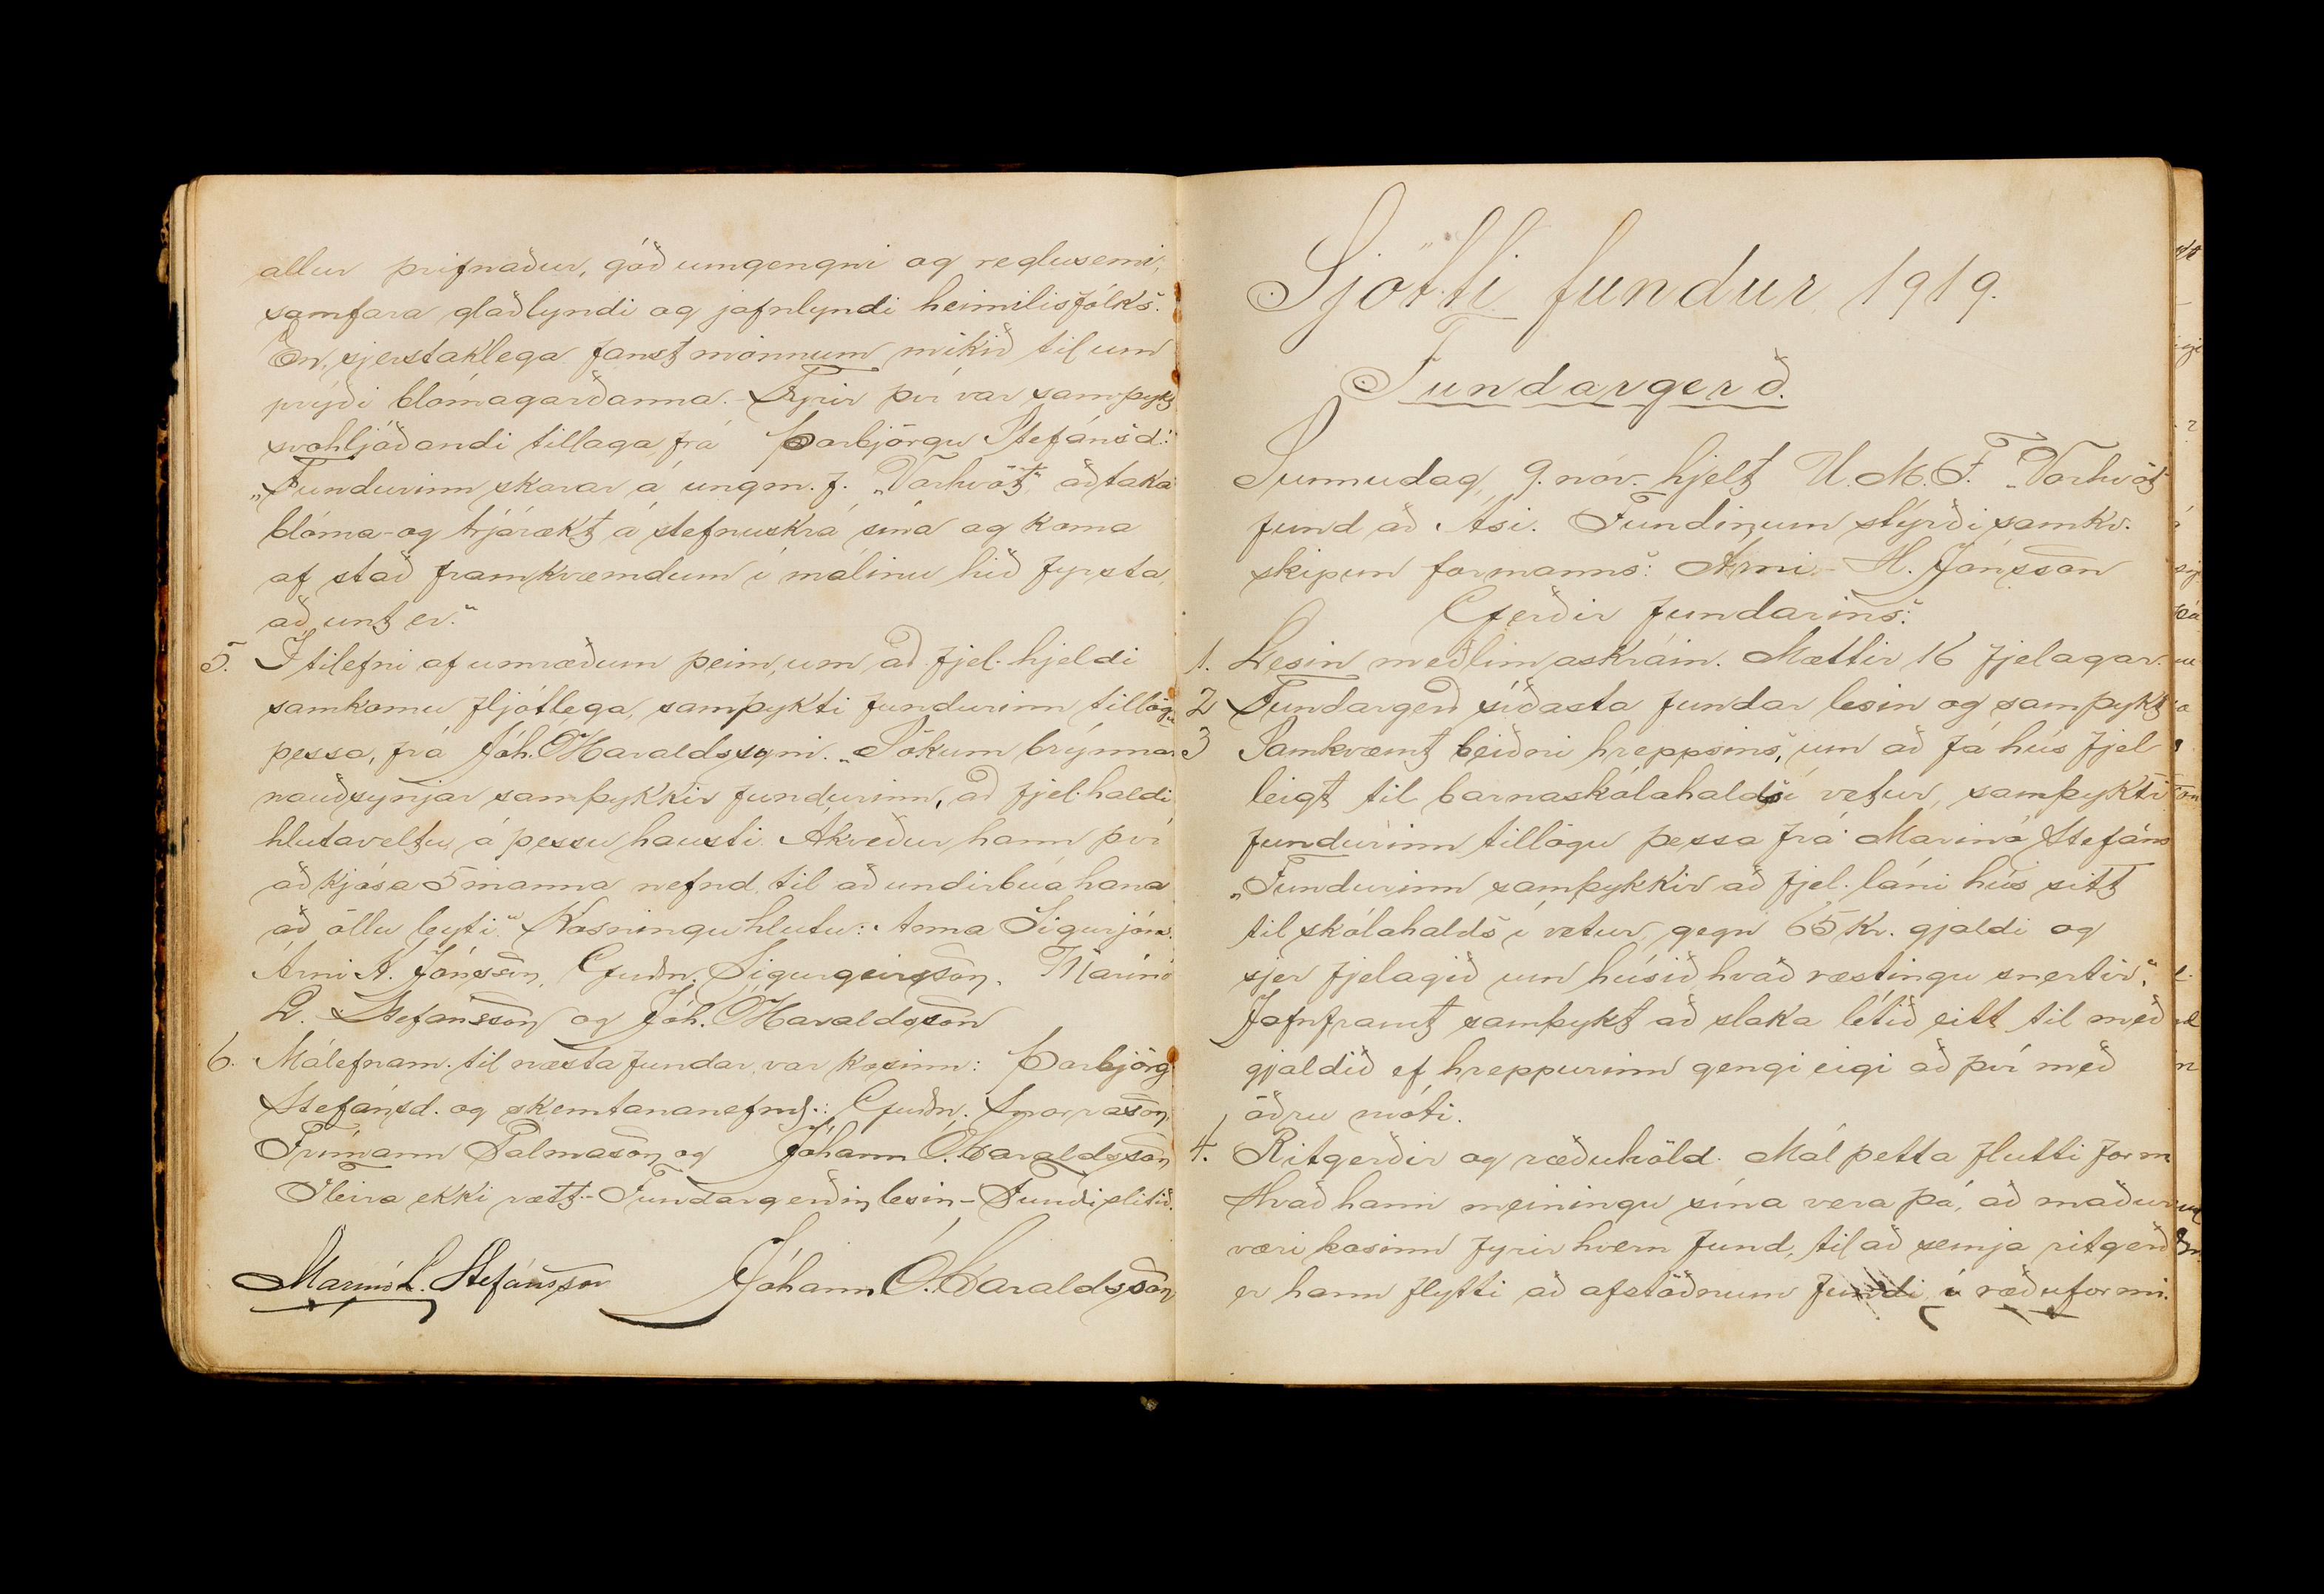 allur þrifnaður, góð umgengni og reglusemi,
samfara glaðlyndi og jafnlyndi heimilisfólks.
En sjerstaklega fanst mönnum mikið til um
prýði blómagarðanna. Fyrir því var samþykt
svohljóðandi tillaga frá Þorbjörgu Stefánsd.:
„Fundurinn skorar á ungm. f. „Vorhvöt“, að taka
blóma- og trjárækt á stefnuskrá sína og koma
af stað framkvæmdum í málinu hið fyrsta,
að unt er.“
5. Í tilefni af umræðum þeim, um að fjel. hjeldi
samkomu fljótlega, samþykti fundurinn tillögu
þessa, frá Jóh. Ó. Haraldssyni. „Sökum brýnnar
nauðsynjar samþykkir fundurinn, að fjel. haldi
hlutaveltu á þessu hausti. Ákveður hann því
að kjósa 5 manna nefnd til að undirbúa hana
að öllu leyti.“ Kosningu hlutu: Anna Sigurjóns.
Árni A. Jónsson, Guðn. Sigurgeirsson, Marinó
L. Stefánsson og Jóh. Ó. Haraldsson
6. Málefnam. til næsta fundar var kosinn: Þorbjörg
Stefánsd. og skemtananefnd: Guðn. Snorrason,
Frímann Pálmason og Jóhann Ó. Haraldsson
Fleira ekki rætt. - Fundargerðin lesin - Fundi slitið.
Marinó L. Stefánsson Jóhann Ó. Haraldsson
Sjötti fundur 1919.
Fundargerð.
Sunnudag, 9. nóv. hjelt U. M. F. „Vorhvöt
fund að Ási. Fundinum stýrði samkv.
skipun formanns: Árni A. Jónsson
Gerðir fundarins:
1. Lesin meðlimaskráin. Mættir 16 fjelagar.
2 Fundargerð síðasta fundar lesin og samþykt
3 Samkvæmt beiðni hreppsins, um að fá hús fjel
leigt til barnaskólahalds í vetur, samþykti
fundurinn tillögu þessa frá Marinó Stefáns
„Fundurinn samþykkir að fjel. láni hús sitt
til skólahalds í vetur, gegn 65 kr. gjaldi og
sjer fjelagið um húsið hvað ræstingu snertir.“
Jafnframt samþykt að slaka lítið eitt til með
gjaldið ef hreppurinn gengi eigi að því með
öðru móti.
4. Ritgerðir og ræðuhöld. Mál þetta flutti form
Kvað hann meiningu sína vera þá, að maður
væri kosinn fyrir hvern fund, til að semja ritgerð
er hann flytti að afstöðnum fundi í ræðuformi.